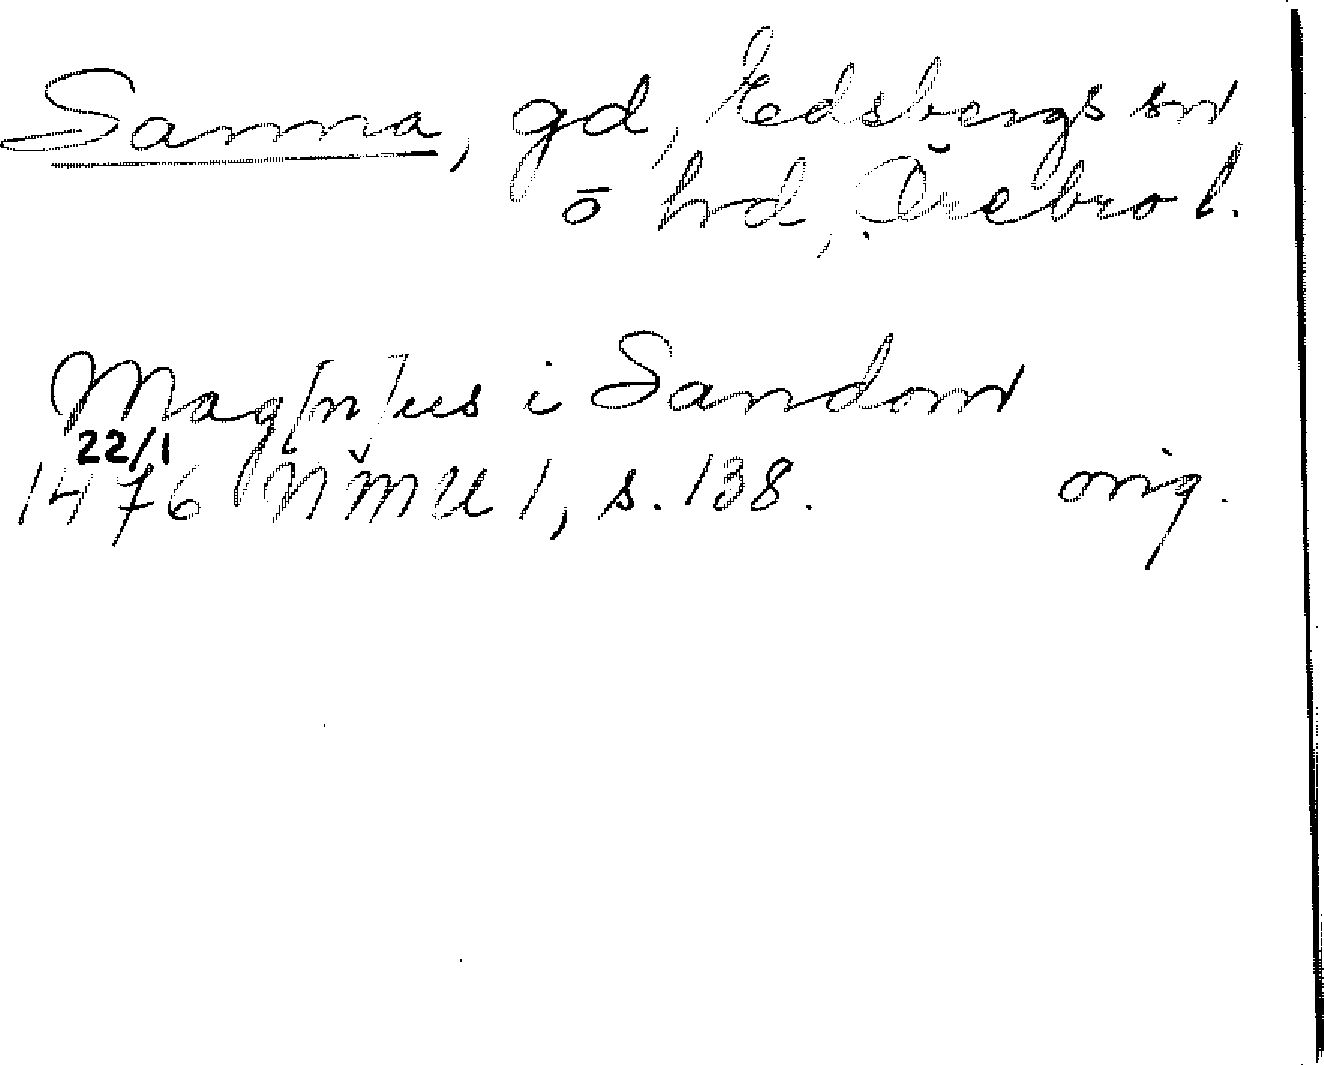 Sanna, gd, Edsbergs sn
o hrd, Örebro l.
Mag[n]us i Sandom
22/1
1476 NMU 1, s. 138. orig.